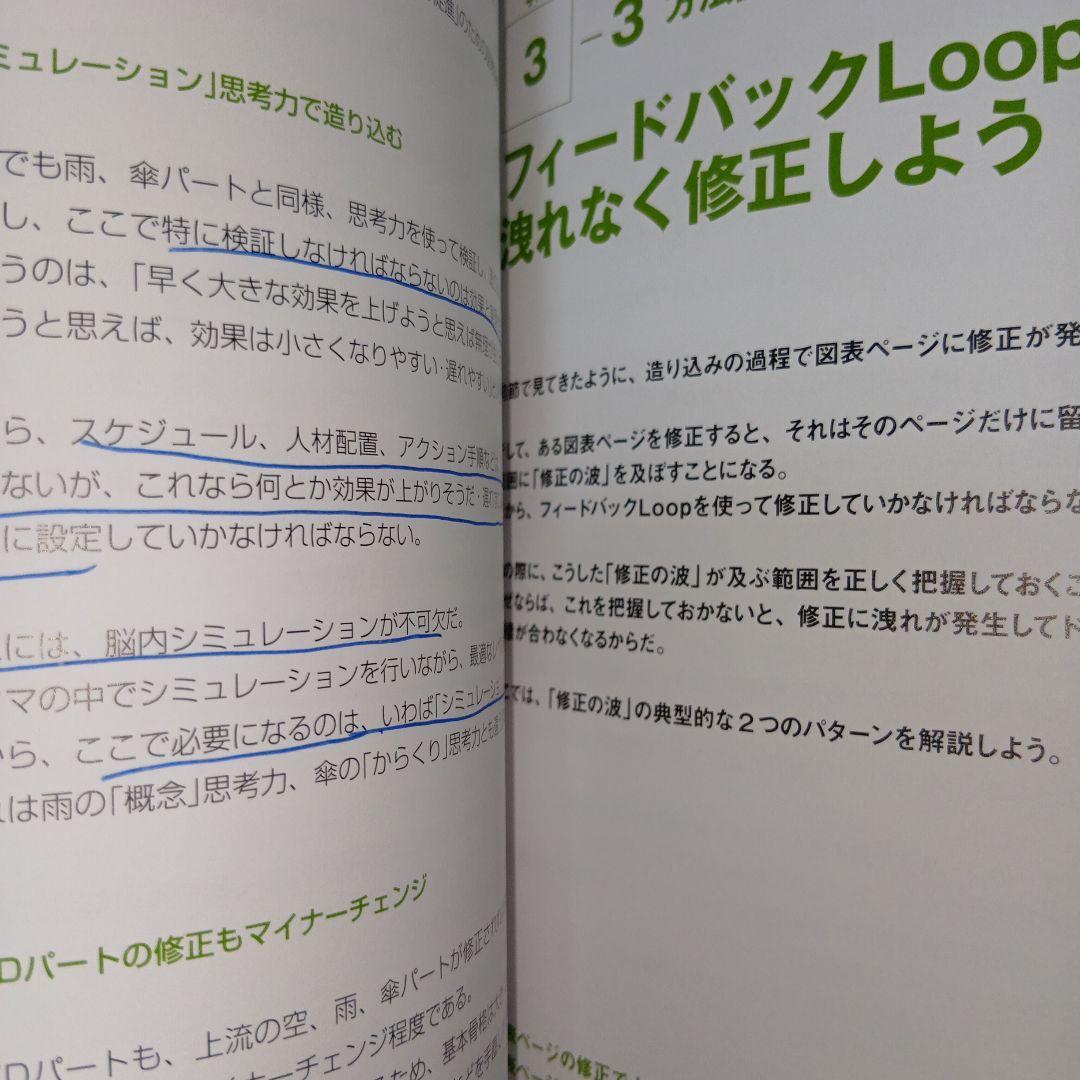 ミュレーション」思考力で造り込む
でも雨、傘パートと同様、思考力を使って検証し、
し、ここで特に検証しなければならないのは効果と
うのは、「早く大きな効果を上げようと思えば無理が
うと思えば、効果は小さくなりやすい・遅れやすい」と
ら、スケジュール、人材配置、アクション手順など
ないが、これなら何とか効果が上がりそうだ・
に設定していかなければならない。
には、脳内シミュレーションが不可欠だ。
マの中でシミュレーションを行いながら、最適な
から、ここで必要になるのは、いわば「シミュレーショ
れは雨の「概念」思考力、傘の「からくり」思考力とも
Dパートの修正もマイナーチェンジ
、上流の空、雨、傘パートが修正され
Dパートも、
イナーチェンジ程度である。
ため、基本骨格は
3-3 方法
フィードバックLoop
洩れなく修正しよう
節で見てきたように、造り込みの過程で図表ページに修正が発
して、ある図表ページを修正すると、それはそのページだけに留
範囲に「修正の波」を及ぼすことになる。
から、フィードバックLoopを使って修正していかなければならな
の際に、こうした「修正の波」が及ぶ範囲を正しく把握しておくこ
ぜならば、これを把握しておかないと、修正に洩れが発生してド
が合わなくなるからだ。
こでは、「修正の波」の典型的な2つのパターンを解説しよう。
ページの修正で